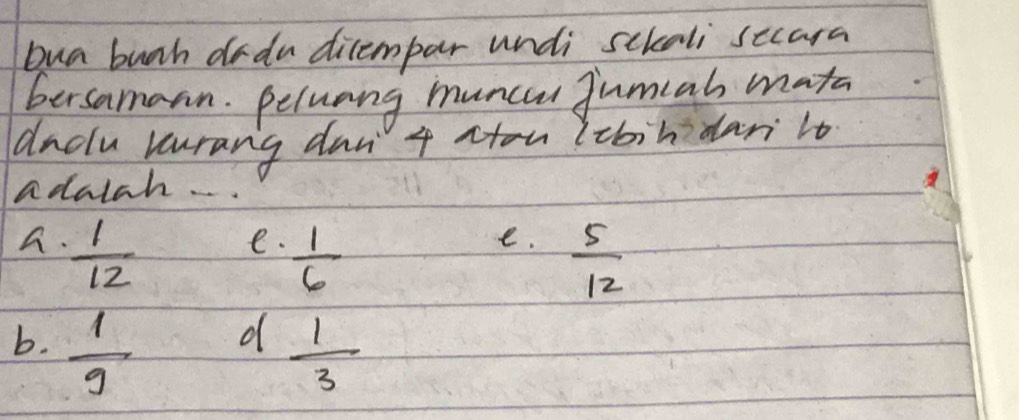 Dua buah dadu dilempar undi sekali secara
bersamaan. Peluang muncul jumlah mata
dadu kurang dari 4 atau lebih dari 10
adalah ...
a. 1/12 c. 1/6 e. 5/12
b. 1/9 d 1/3